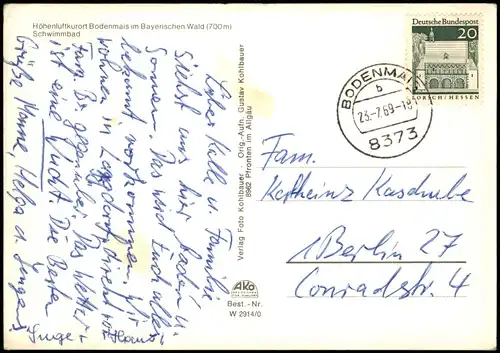 Höhenluftkurort Bodenmais im Bayerischen Wald (700 m)
Schwimmbad
Liebe Kalle u. Familie
Sielst uns hier baden u.
Sonnen. Das wird Euch alles
bekannt vorkommen. Wir
wohnen in Langdorf direkt vor
Fam. Dr. gegenüber. Das Wetter
ist eine Wucht. Die Besten
Grüße Hanne, Helga u. Jürgen
Inge + Hans
Verlag Foto Kohlbauer · Orig.-Aufn. Gustav Kohlbauer
8962 Pfronten im Allgäu
AKO
Best.-Nr.
W 2914/0
Deutsche Bundespost
20
LORSCH/HESSEN
BODENMAIS
b
23.-7.69-18
8373
Fam.
Karlheinz Kaschube
1 Berlin 27
Conradstr. 4